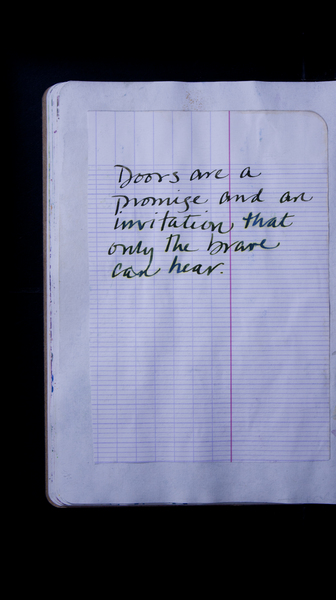 Doors are a
promise and an
invitation that
only the brave
can hear.